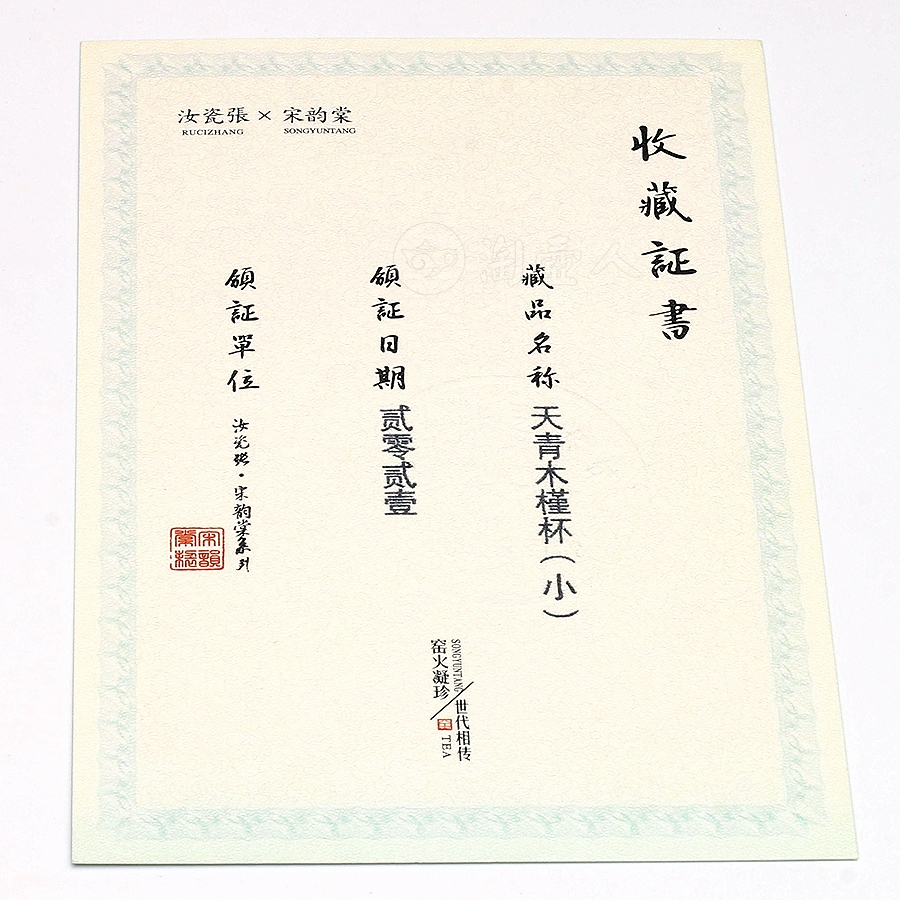 汝瓷張 × 宋韵棠
RUCIZHANG SONGYUNTANG
收藏証書
藏品名称 天青木槿杯(小)
領証日期 贰零贰壹
領証單位 汝瓷張·宋韵棠系列
SONGYUNTANG
窑火凝珍
世代相传
TEA